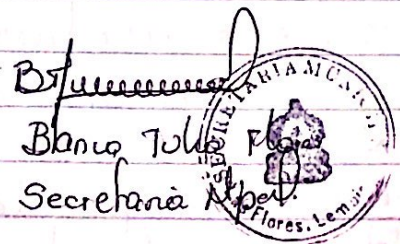 Blanca Julia Flores
Secretaria Mpal.
SECRETARIA MUNICIPAL
Flores, Lempira